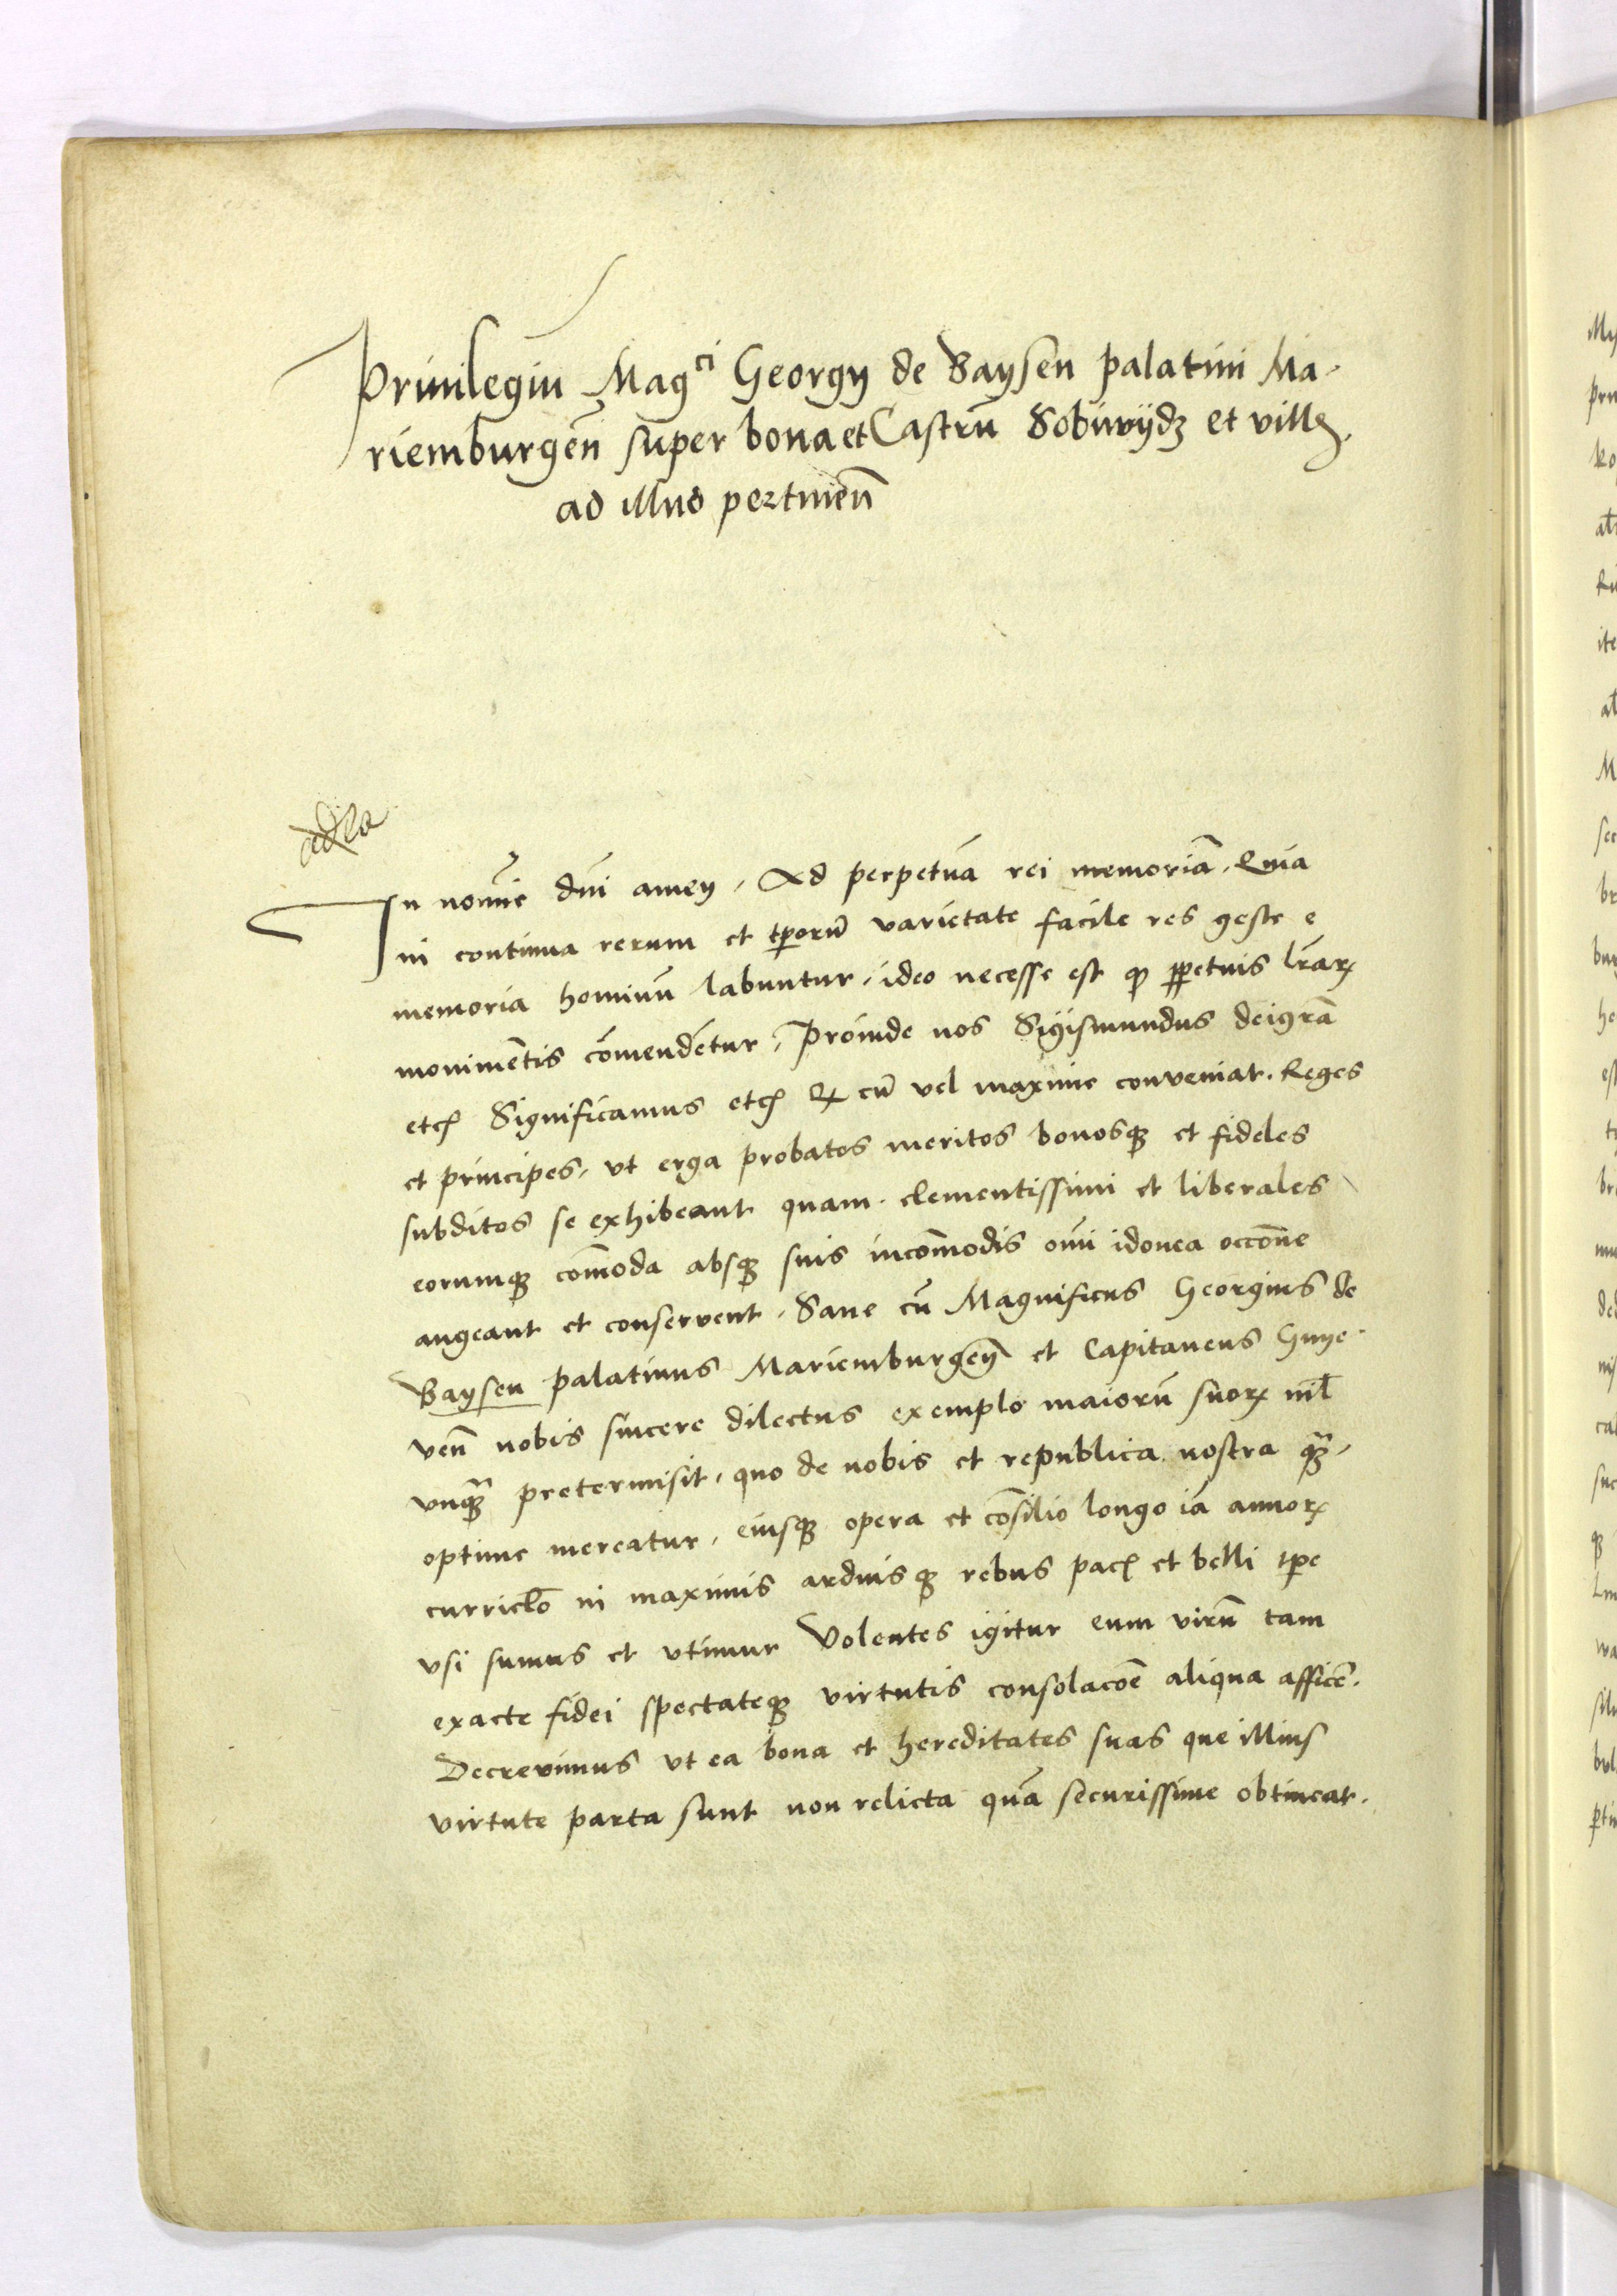 Priuilegiu Mag^ci Georgy de Baysen palatini Ma-
riemburgen̄ super bona et Castrū Sobuvijdz et villꝭ
ad illud pertinen̄
In nomīe dn̄i amen, Ad perpetuā rei memoriā. Quia
in continua rerum et tꝑorū varietate facile res geste e
memoria hominū labuntur, ideo necesse est ꝙ ꝑpetuis lr̄arꝝ
monimētis cōmendētur, Proinde nos Sigismundus dei gr̄a
etcꝭ Significamus etcꝭ Qꝫ cū vel maxime conveniat. Reges
et principes, vt erga probatos meritos bonosqꝫ et fideles
subditos se exhibeant quam clementissimi et liberales
eorumqꝫ cōmoda absqꝫ suis incōmodis om̄i idonea occōne
augeant et conservent. Sane cū Magnificus Georgius de
Baysen palatinus Mariemburgen̄ et Capitaneus Gnye-
ven̄ nobis sincere dilectus exemplo maiorū suorꝝ nil̄
vnqꝫ̄ pretermisit, quo de nobis et republica nostra qꝫ̄,
optime mereatur, eiusqꝫ opera et cōsilio longo iā annorꝝ
curriclō in maximis arduisqꝫ rebus pacꝭ et belli tꝑe
vsi sumus et vtimur Volentes igitur eum virū tam
exacte fidei spectateqꝫ virtutis consolacōe aliqua afficē.
Decrevimus vt ea bona et hereditates suas que illius
virtute parta sunt non relicta quā securissime obtineat.